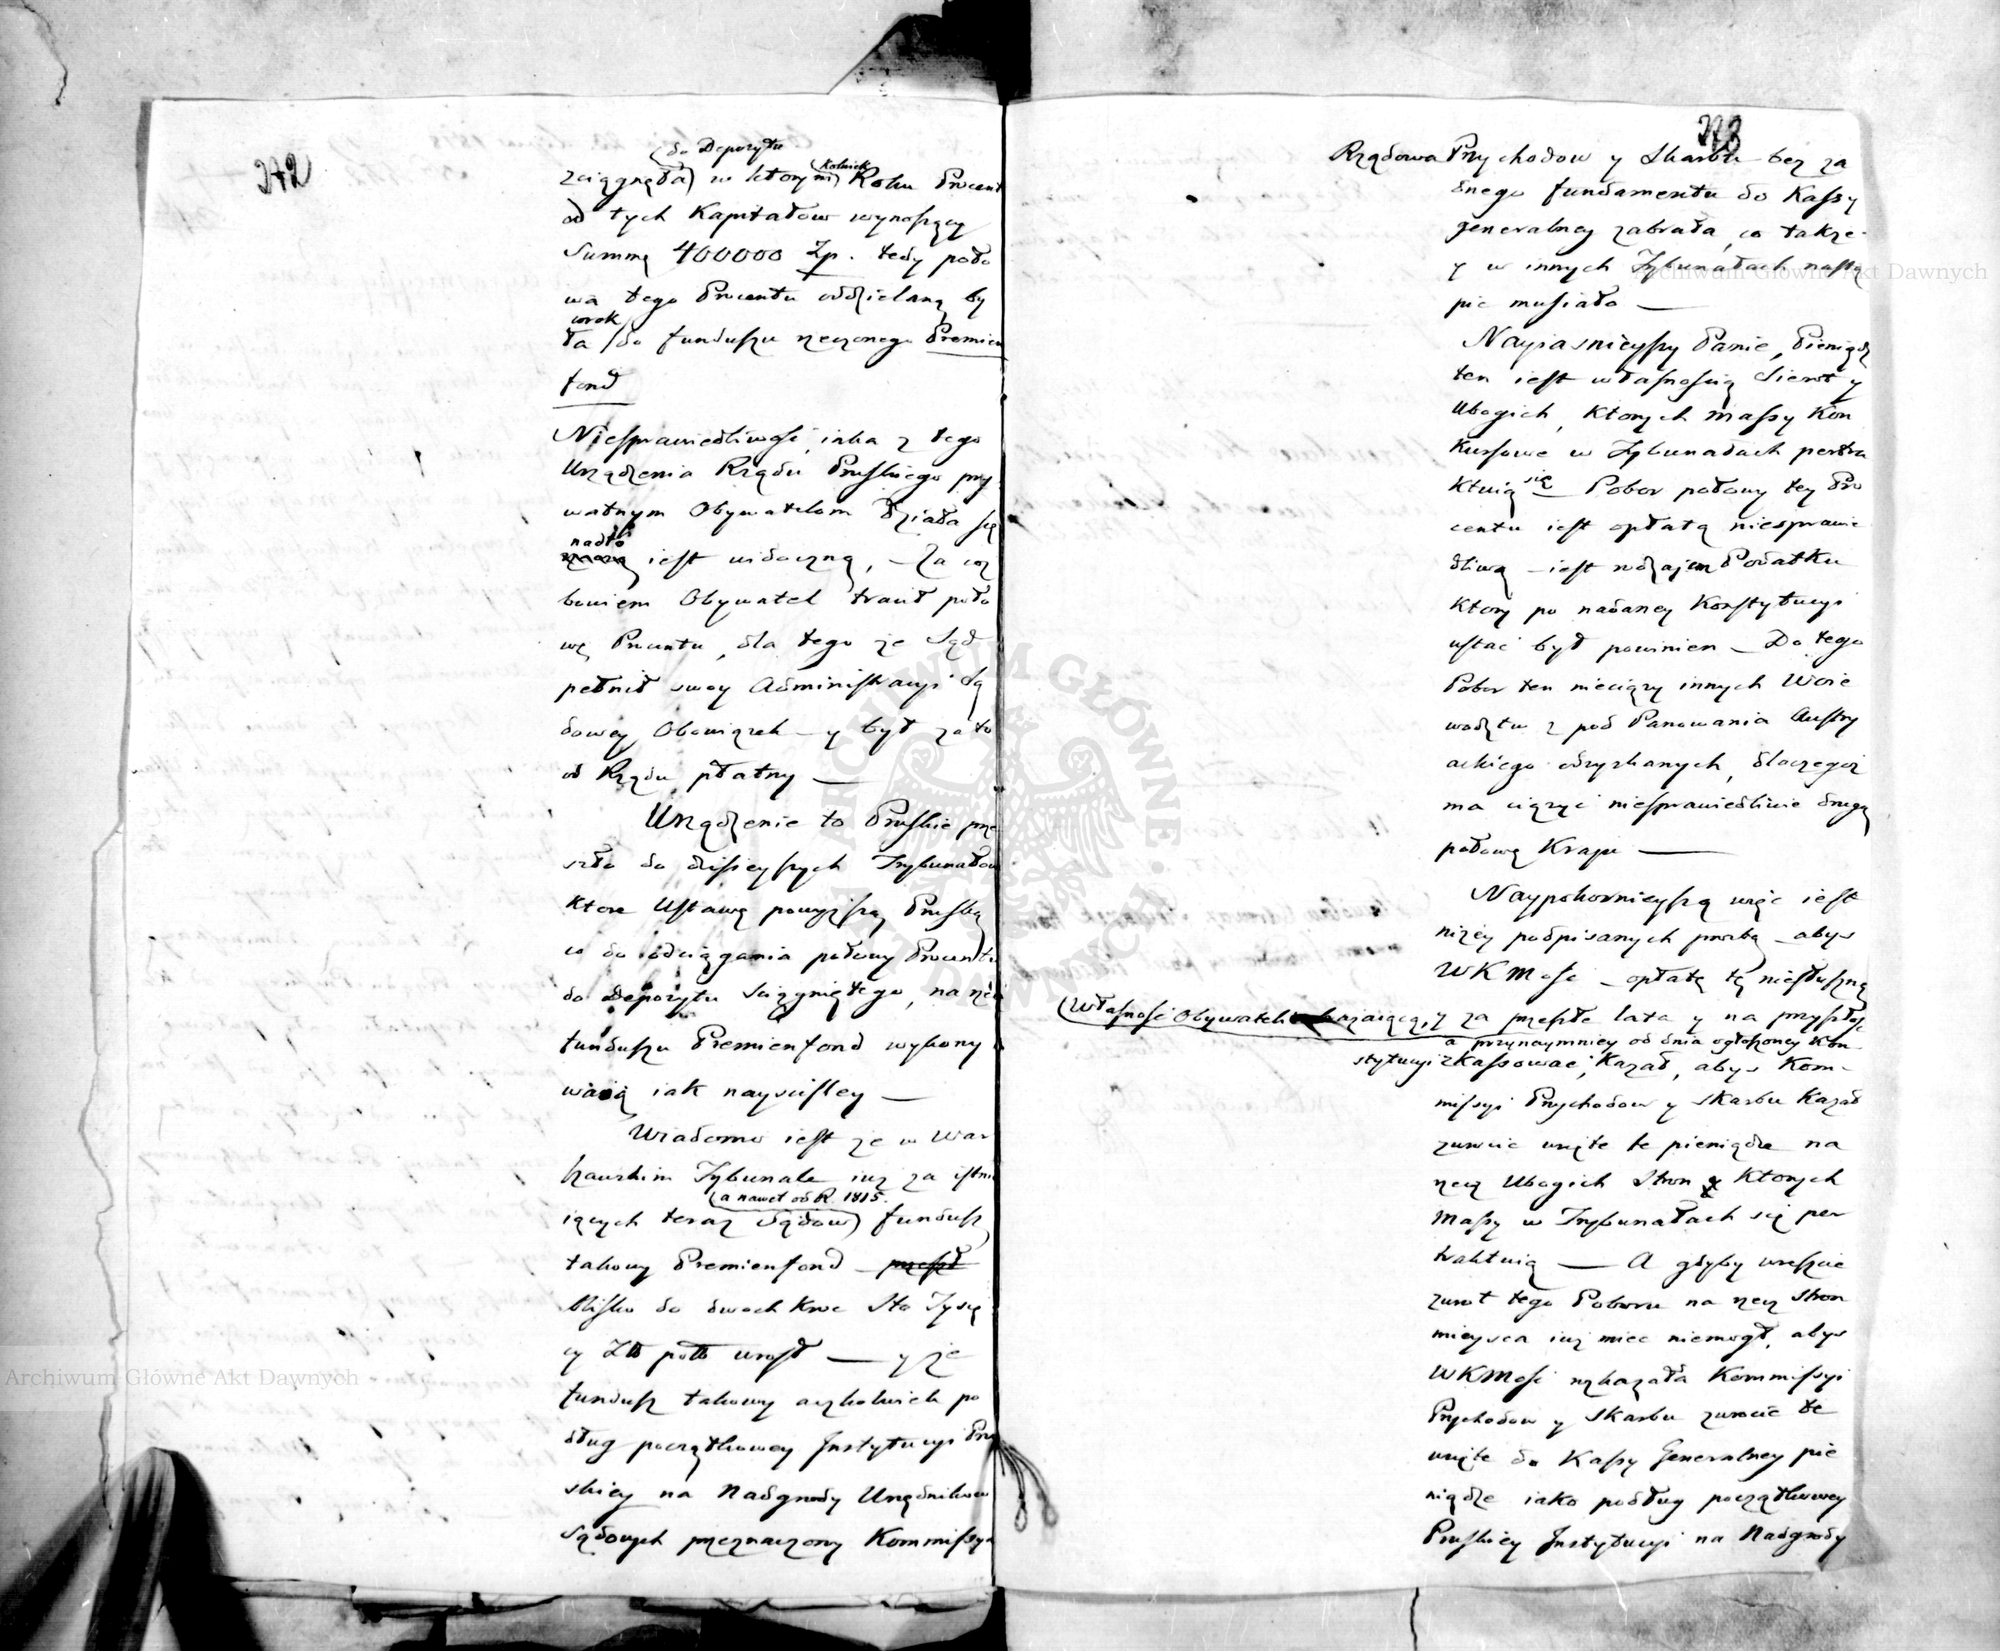 272
do Depozytu
zciągnęła w ktorym Kolwiek Roku Procent
od tych Kapitałow wynoszący
Summę 400000 Zp. tedy poło
wa tego Procentu oddzielaną by
corok
ła do funduszu rzeczonego Premien
fond
Niesprawiedliwość, iaka z tego
Urządzenia Rządu Pruskiego pry
watnym Obywatelom działa się
nadto
iest widoczną, – Za coż
bowiem Obywatel tracił poło
wę Procentu, dla tego że Sąd
pełnił swoy Administracyi Są
dowey Obowiązek – y był za to
od Rządu płatny —
Urządzenie to Pruskie prze
szło do dzisieyszych Trybunałow
ktore Ustawę powyższą Pruską
co do odciągania połowy Procentu
do Depozytu sciągniętego, na rzecz
funduszu Premienfond wykony
waią iak nayscisley —
Wiadomo iest że w War
szawskim Trybunale iuż za istni
a nawet od R. 1815.
iących teraz Sądow fundusz
takowy Premienfond – przeszł
blisko do dwoch kroc Sto Tysię
cy Zło pols urosł — y że
fundusz takowy aczkolwiek po
dług początkowey Instytucyi Pru
skiey na Nadgrody Urzędnikow
Sądowych przeznaczony Kommissya
273
Rządowa Przychodow y Skarbu bez za
dnego fundamentu do Kassy
generalney zabrała, co także
y w innych Trybunałach nastą
pic musiało —
Nayiasnieyszy Panie, Pieniądz
ten iest własnością Sierot y
Ubogich, Ktorych Massy Kon
Kursowe w Trybunałach pertra
ktuią się – Pobor połowy tey Pro
centu iest opłatą niesprawie
dliwą – iest rodzajem Podatku
Ktory po nadaney Konstytucyi
ustać był powinien – Do tego
Pobor ten nieciąży innych Woie
wodztw z pod Panowania Austry
ackiego odzyskanych, dlaczegoż
ma ciążyć niesprawiedliwie drugą
połowę Kraju —
Naypokornieyszą więc iest
niżey podpisanych prozbą – abyś
WKMość – opłatę tę niesłuszną
Własność Obywatelską, y za przeszłe lata y na przyszłość
a przynaymniey od dnia ogłoszoney Kon-
stytucyi zKassować, Kazał, abyś Kom-
missyi Przychodow y Skarbu Kazał
zwrocic wzięte te pieniądze na
rzecz Ubogich Stron Ktorych
Massy w Trybunałach się per
traktuią — A gdyby wreszcie
zwrot tego Poboru na rzecz Stron
mieysca iuż miec niemogł, abyś
WKMość rozkazała Kommissyi
Przychodow y Skarbu zwrocić te
wzięte do Kassy Generalney pie
niądze iako podług początkowey
Pruskiey Instytucyi na Nadgrody
Archiwum Główne Akt Dawnych
Archiwum Główne Akt Dawnych
ARCHIWUM GŁÓWNE AKT DAWNYCH